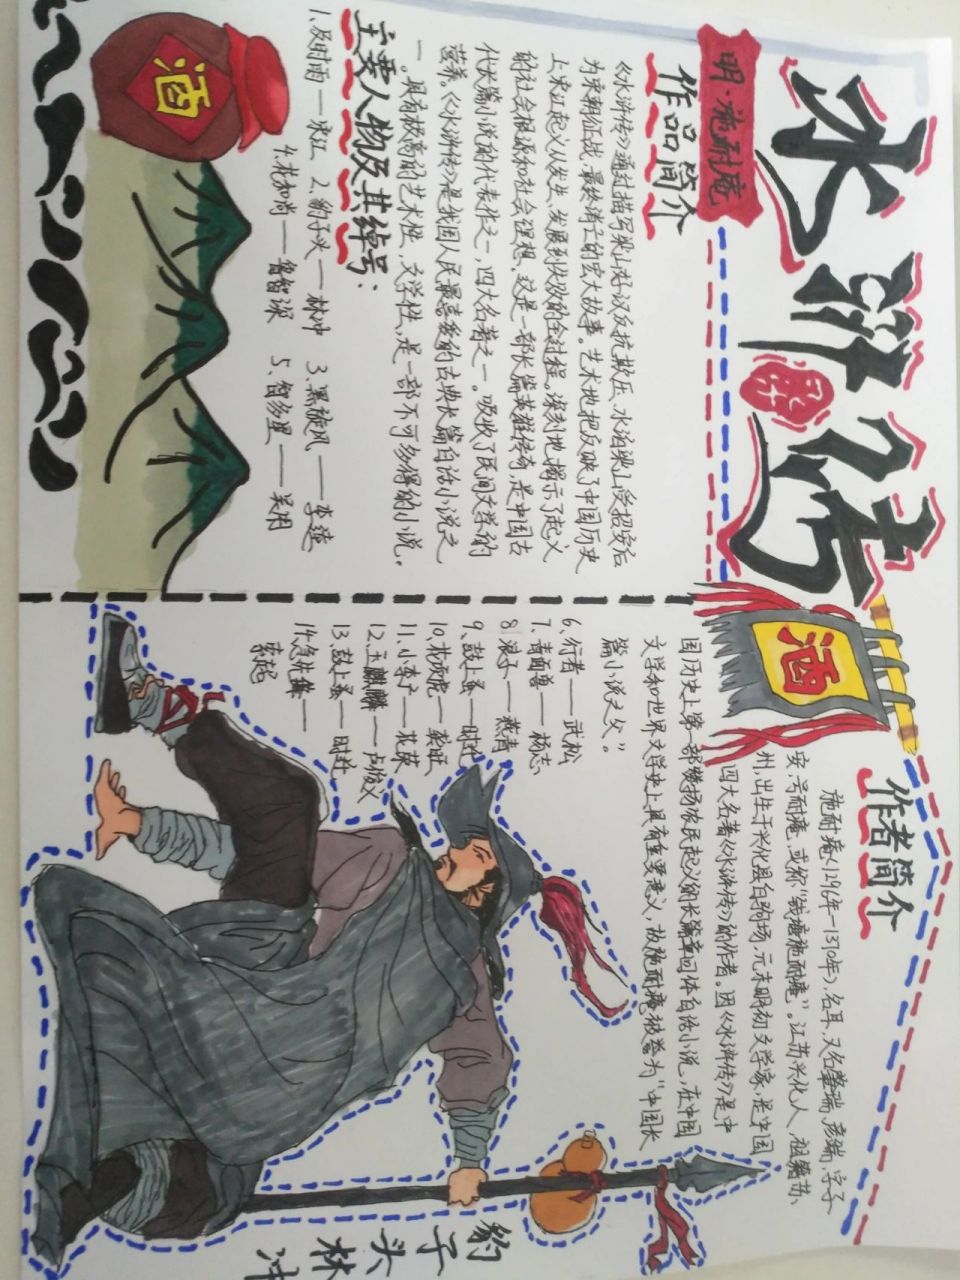 水浒传
明·施耐庵
作品简介
《水浒传》通过描写梁山好汉反抗欺压、水泊梁山受招安后
为宋朝征战,最终消亡的宏大故事。艺术地把反映了中国历史
上宋江起义从发生、发展到失败的全过程。深刻地揭示了起义
的社会根源和社会理想。这是一部长篇英雄传奇,是中国古
代长篇小说的代表作之一,四大名著之一。吸收了民间文学的
营养。《水浒传》是我国人民最喜爱的古典长篇白话小说之
一。具有极高的艺术性、文学性,是一部不可多得的小说。
主要人物及其绰号:
1、及时雨——宋江 2、豹子头——林冲 3、黑旋风——李逵
4、花和尚——鲁智深 5、智多星——吴用
酒
酒
作者简介
施耐庵(1296年—1370年),名耳,又名肇瑞,彦端,字子
安,号耐庵,或称"钱塘施耐庵"。江苏兴化人,祖籍苏
州,出生于兴化县白驹场,元末明初文学家,是中国
四大名著《水浒传》的作者。因《水浒传》是中
国历史上第一部赞扬农民起义的长篇章回体白话小说,在中国
文学和世界文学史上具有重要意义,故施耐庵被誉为"中国长
篇小说之父"。
6、行者——武松
7、青面兽——杨志
8、浪子——燕青
9、鼓上蚤——时迁
10、花项虎——龚旺
11、小李广——花荣
12、玉麒麟——卢俊义
13、鼓上蚤——时迁
14、急先锋——
索超
豹子头林冲